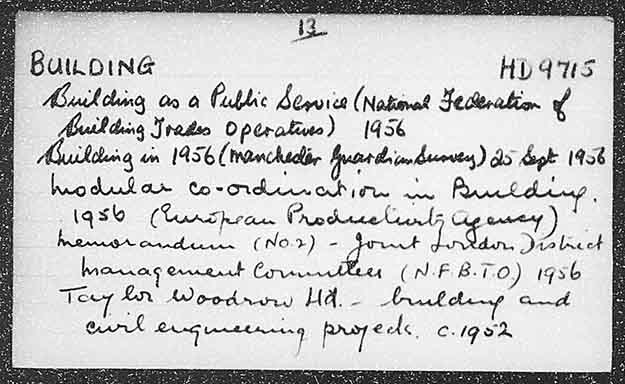 13
BUILDING HD 9715
Building as a Public Service (National Federation of
Building Trades Operatives) 1956
Building in 1956 (Manchester Guardian Survey) 25 Sept 1956
Modular co-ordination in Building.
1956 (European Productivity Agency)
Memorandum (No.2) - Joint London District
Management Committee (N.F.B.T.O) 1956
Taylor Woodrow Ltd. - building and
civil engineering projects. c.1952